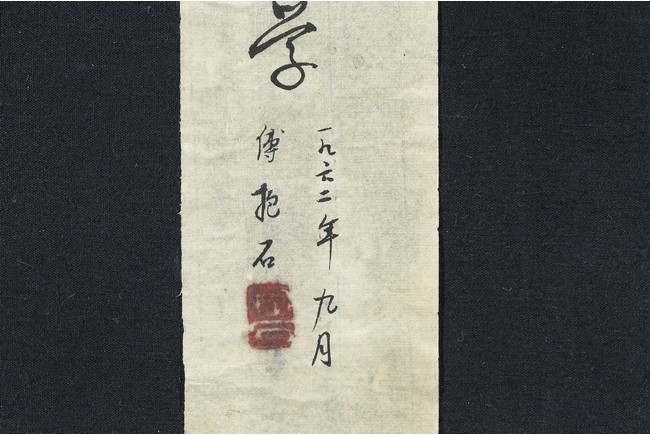 学
一九六二年九月
傅抱石